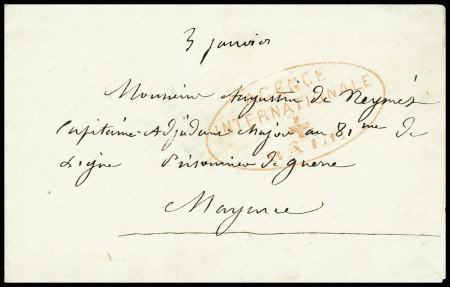 3 janvier
AGENCE
INTERNATIONALE
Monsieur Augustin de Neymet
Capitaine-Adjudant Major au 81 me de
Ligne Prisonnier de guerre
Mayence